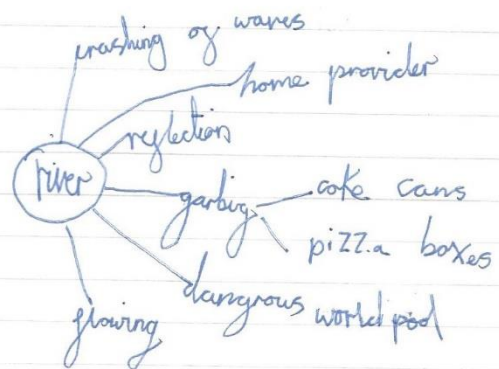 crashing of waves
home provider
reflection
river
garbig
coke cans
pizza boxes
dangrous world pool
flowing